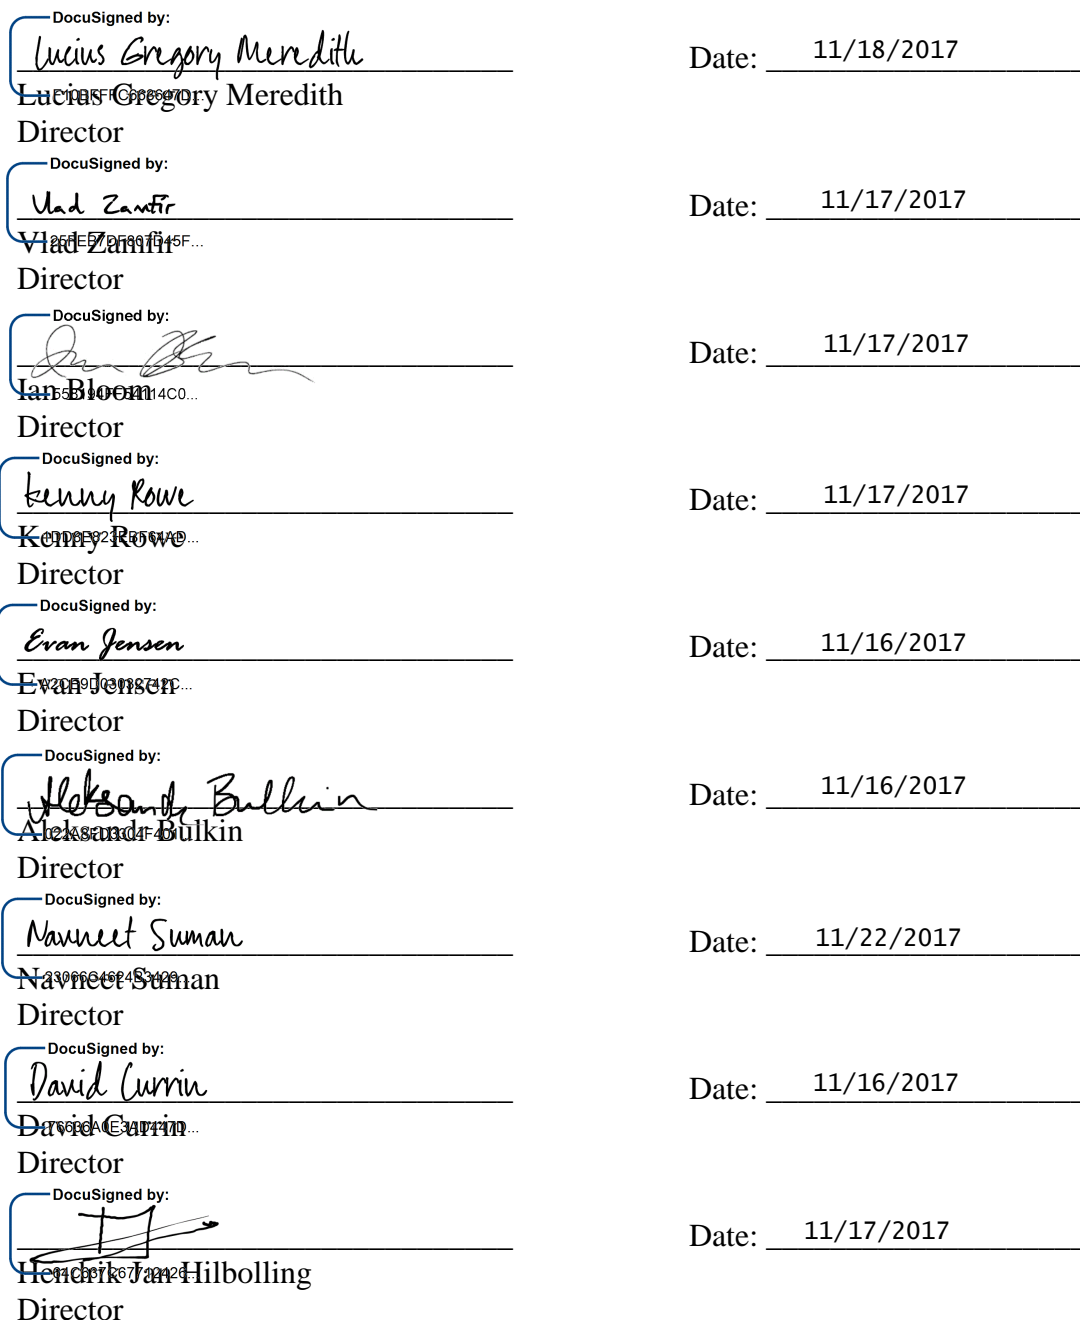 DocuSigned by:
Lucius Gregory Meredith Date: 11/18/2017
Lucius Gregory Meredith
Director
DocuSigned by:
Vlad Zamfir Date: 11/17/2017
Vlad Zamfir
Director
DocuSigned by:
Date: 11/17/2017
Ian Bloom
Director
DocuSigned by:
Kenny Rowe Date: 11/17/2017
Kenny Rowe
Director
DocuSigned by:
Evan Jensen Date: 11/16/2017
Evan Jensen
Director
DocuSigned by:
Aleksandr Bulkin Date: 11/16/2017
Aleksandr Bulkin
Director
DocuSigned by:
Navneet Suman Date: 11/22/2017
Navneet Suman
Director
DocuSigned by:
David Currin Date: 11/16/2017
David Currin
Director
DocuSigned by:
Date: 11/17/2017
Hendrik Jan Hilbolling
Director